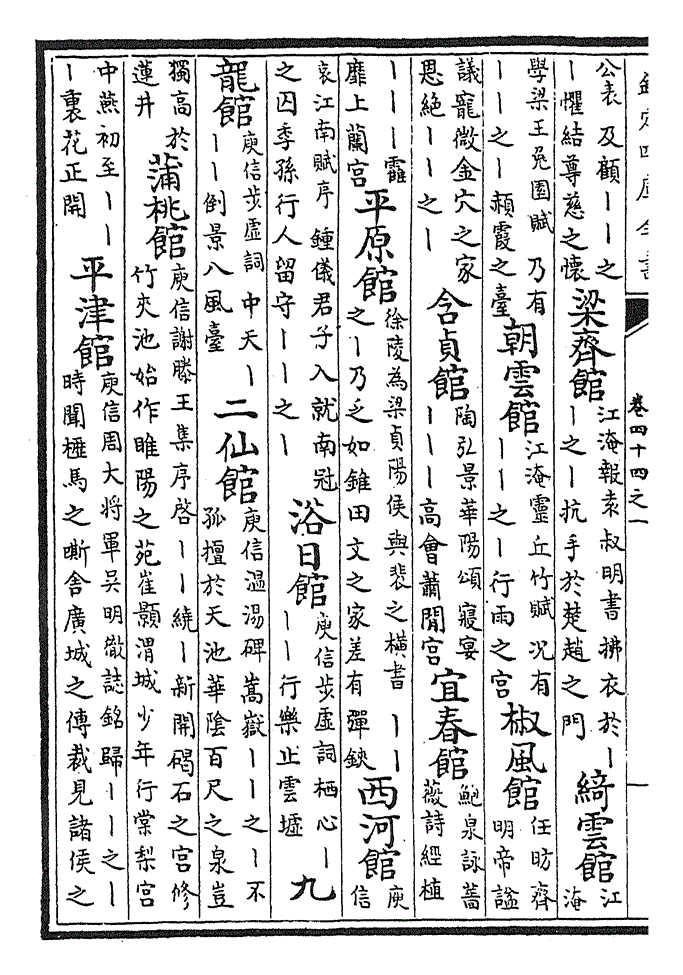 欽定四庫全書
卷四十四之一
公表 及顧丨丨之
丨懼結尊慈之懷
梁齊館
江淹報袁叔明書拂衣於丨
丨之丨抗手於楚趙之門
綺雲館
江
淹
學梁王兔園賦 乃有
丨丨之丨赬霞之臺
朝雲館
江淹靈丘竹賦 况有
丨丨之丨行雨之宮
椒風館
任昉齊
明帝諡
議寵微金穴之家
恩絶丨丨之丨
含貞館
陶弘景華陽頌 寢宴
丨丨丨高會蕭閒宮
宜春館
鮑泉詠薔
薇詩經植
丨丨丨靃
靡上蘭宮
平原館
徐陵為梁貞陽侯與裴之横書 丨丨
之丨乃乏如錐田文之家差有彈鋏
西河館
庾
信
哀江南賦序 鍾儀君子入就南冠
之囚季孫行人留守丨丨之丨
浴日館
庾信步虛詞 栖心丨
丨丨行樂止雲墟
九
龍館
庾信步虛詞 中天丨
丨丨倒景八風臺
二仙館
庾信温湯碑 嵩嶽丨丨之丨不
孤擅於天池華陰百尺之泉豈
獨高於
蓮井
蒲桃館
庾信謝滕王集序啓 丨丨繞丨新開碣石之宮修
竹夾池始作睢陽之苑崔顥渭城少年行棠梨宮
中燕初至丨丨
丨裏花正開
平津館
庾信周大將軍吳明徹誌銘 歸丨丨之丨
時聞櫪馬之嘶舍廣城之傳裁見諸侯之